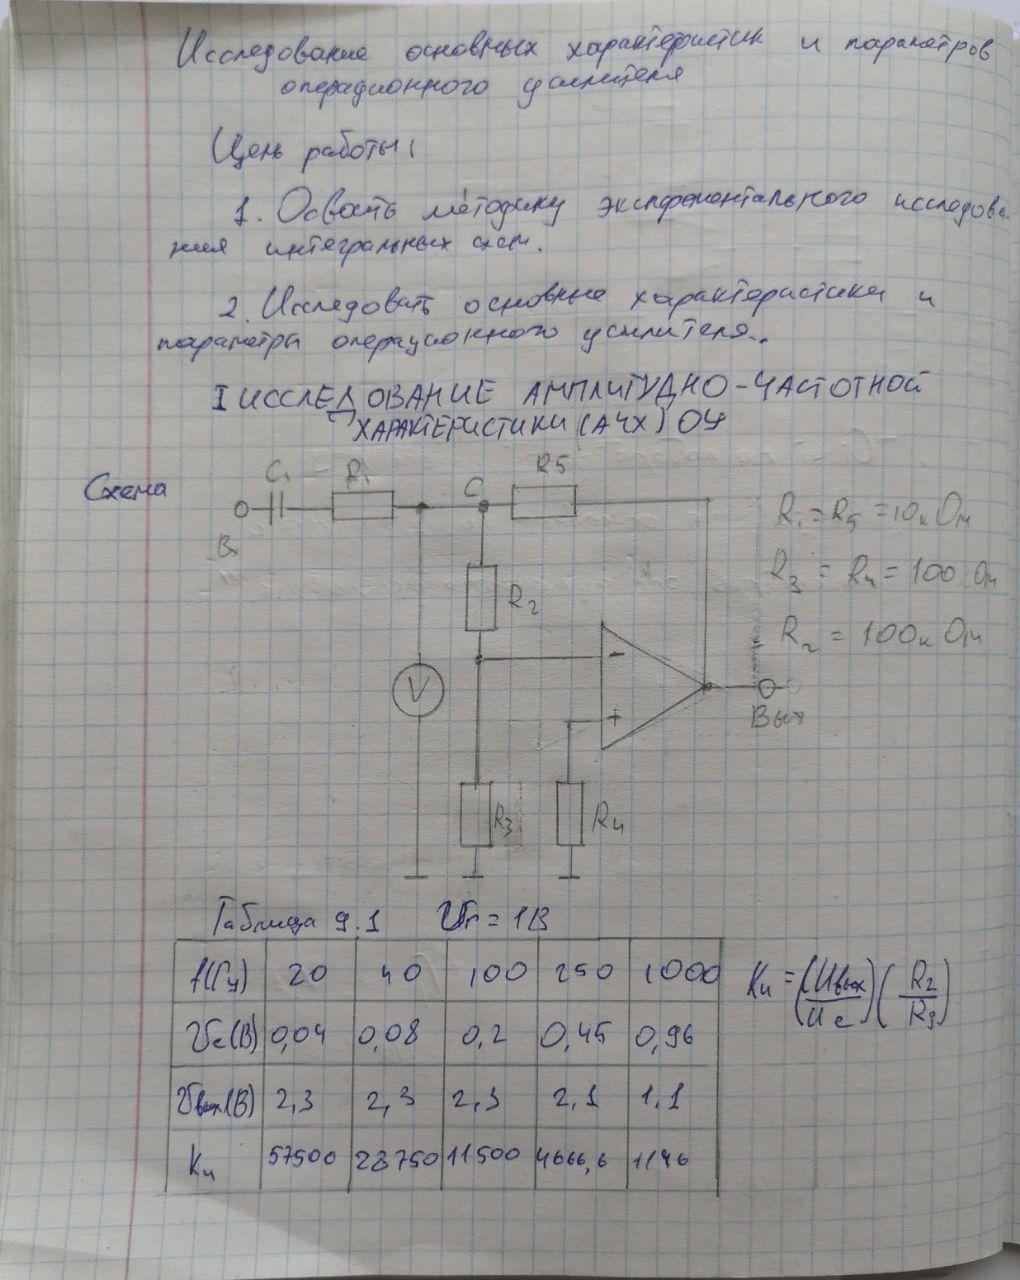 Исследование основных характеристик и параметров
операционного усилителя
Цель работы:
1. Освоить методику экспериментального исследова-
ния интегральных схем.
2. Исследовать основные характеристики и
параметры операционного усилителя..
I ИССЛЕДОВАНИЕ АМПЛИТУДНО-ЧАСТОТНОЙ
ХАРАКТЕРИСТИКИ (АЧХ) ОУ
Схема
C₁ R₁ C R5
Вх
R₁ = R5 = 10кОм
R₃ = R₄ = 100 Ом
R₂ = 100кОм
R₂
V
-
+
Вых
R₃
R₄
Таблица 9.1 Uг = 1В
f(Гц) 20 40 100 250 1000
Uс(В) 0,04 0,08 0,2 0,45 0,96
Uвых(В) 2,3 2,3 2,3 2,1 1,1
Kи 57500 28750 11500 4666,6 1146
Kи = (Uвых/Uс)(R₂/R₃)